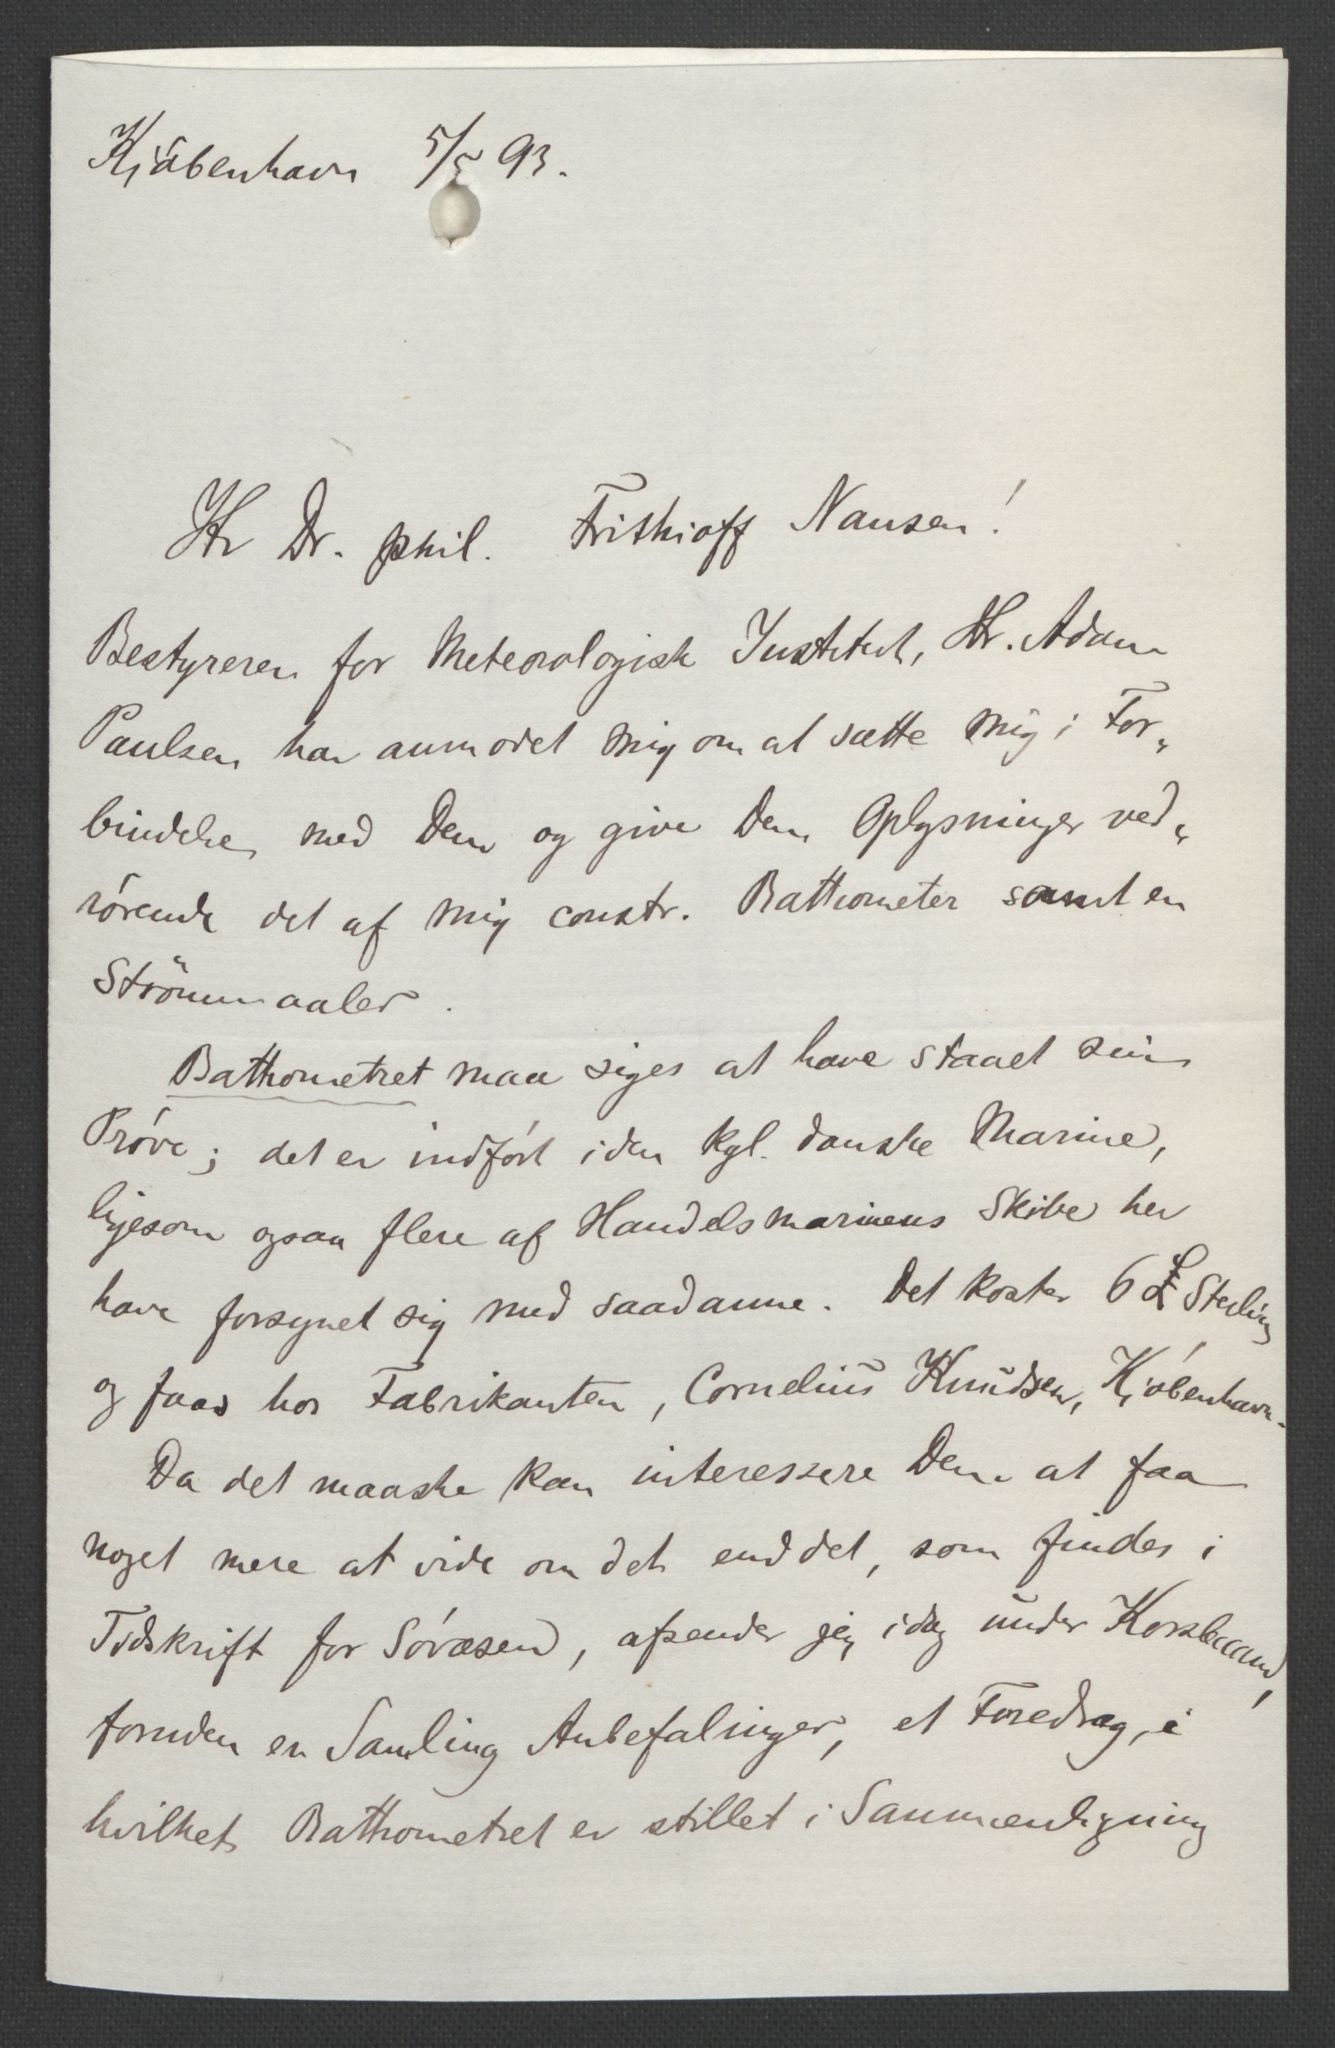 Kjöbenhavn 5/5 93.
Hr Dr. phil. Frithioff Nansen!
Bestyreren for Meteorologisk Institut, Hr. Adam
Paulsen har anmodet mig om at sætte mig i For„
bindelse med Dem og give Dem Oplysninger ved„
rørende det af mig constr. Bathometer samt en
Strömmaaler.
Bathometret maa siges at have staaet sin
Prøve; det er indført i den kgl. danske Marine,
ligesom ogsaa flere af Handelsmarinens Skibe her
have forsynet sig med saadanne. Det koster 6 £ Sterling
og faas hos Fabrikanten, Cornelius Knudsen, Kjøbenhavn.
Da det maaske kan interessere Dem at faa
noget mere at vide om det end det, som findes i
Tidskrift for Søvæsen, afsender jeg idag under Korsbaand,
foruden en Samling Anbefalinger, et Foredrag, i
hvilket Bathometret er stillet i Sammenligning